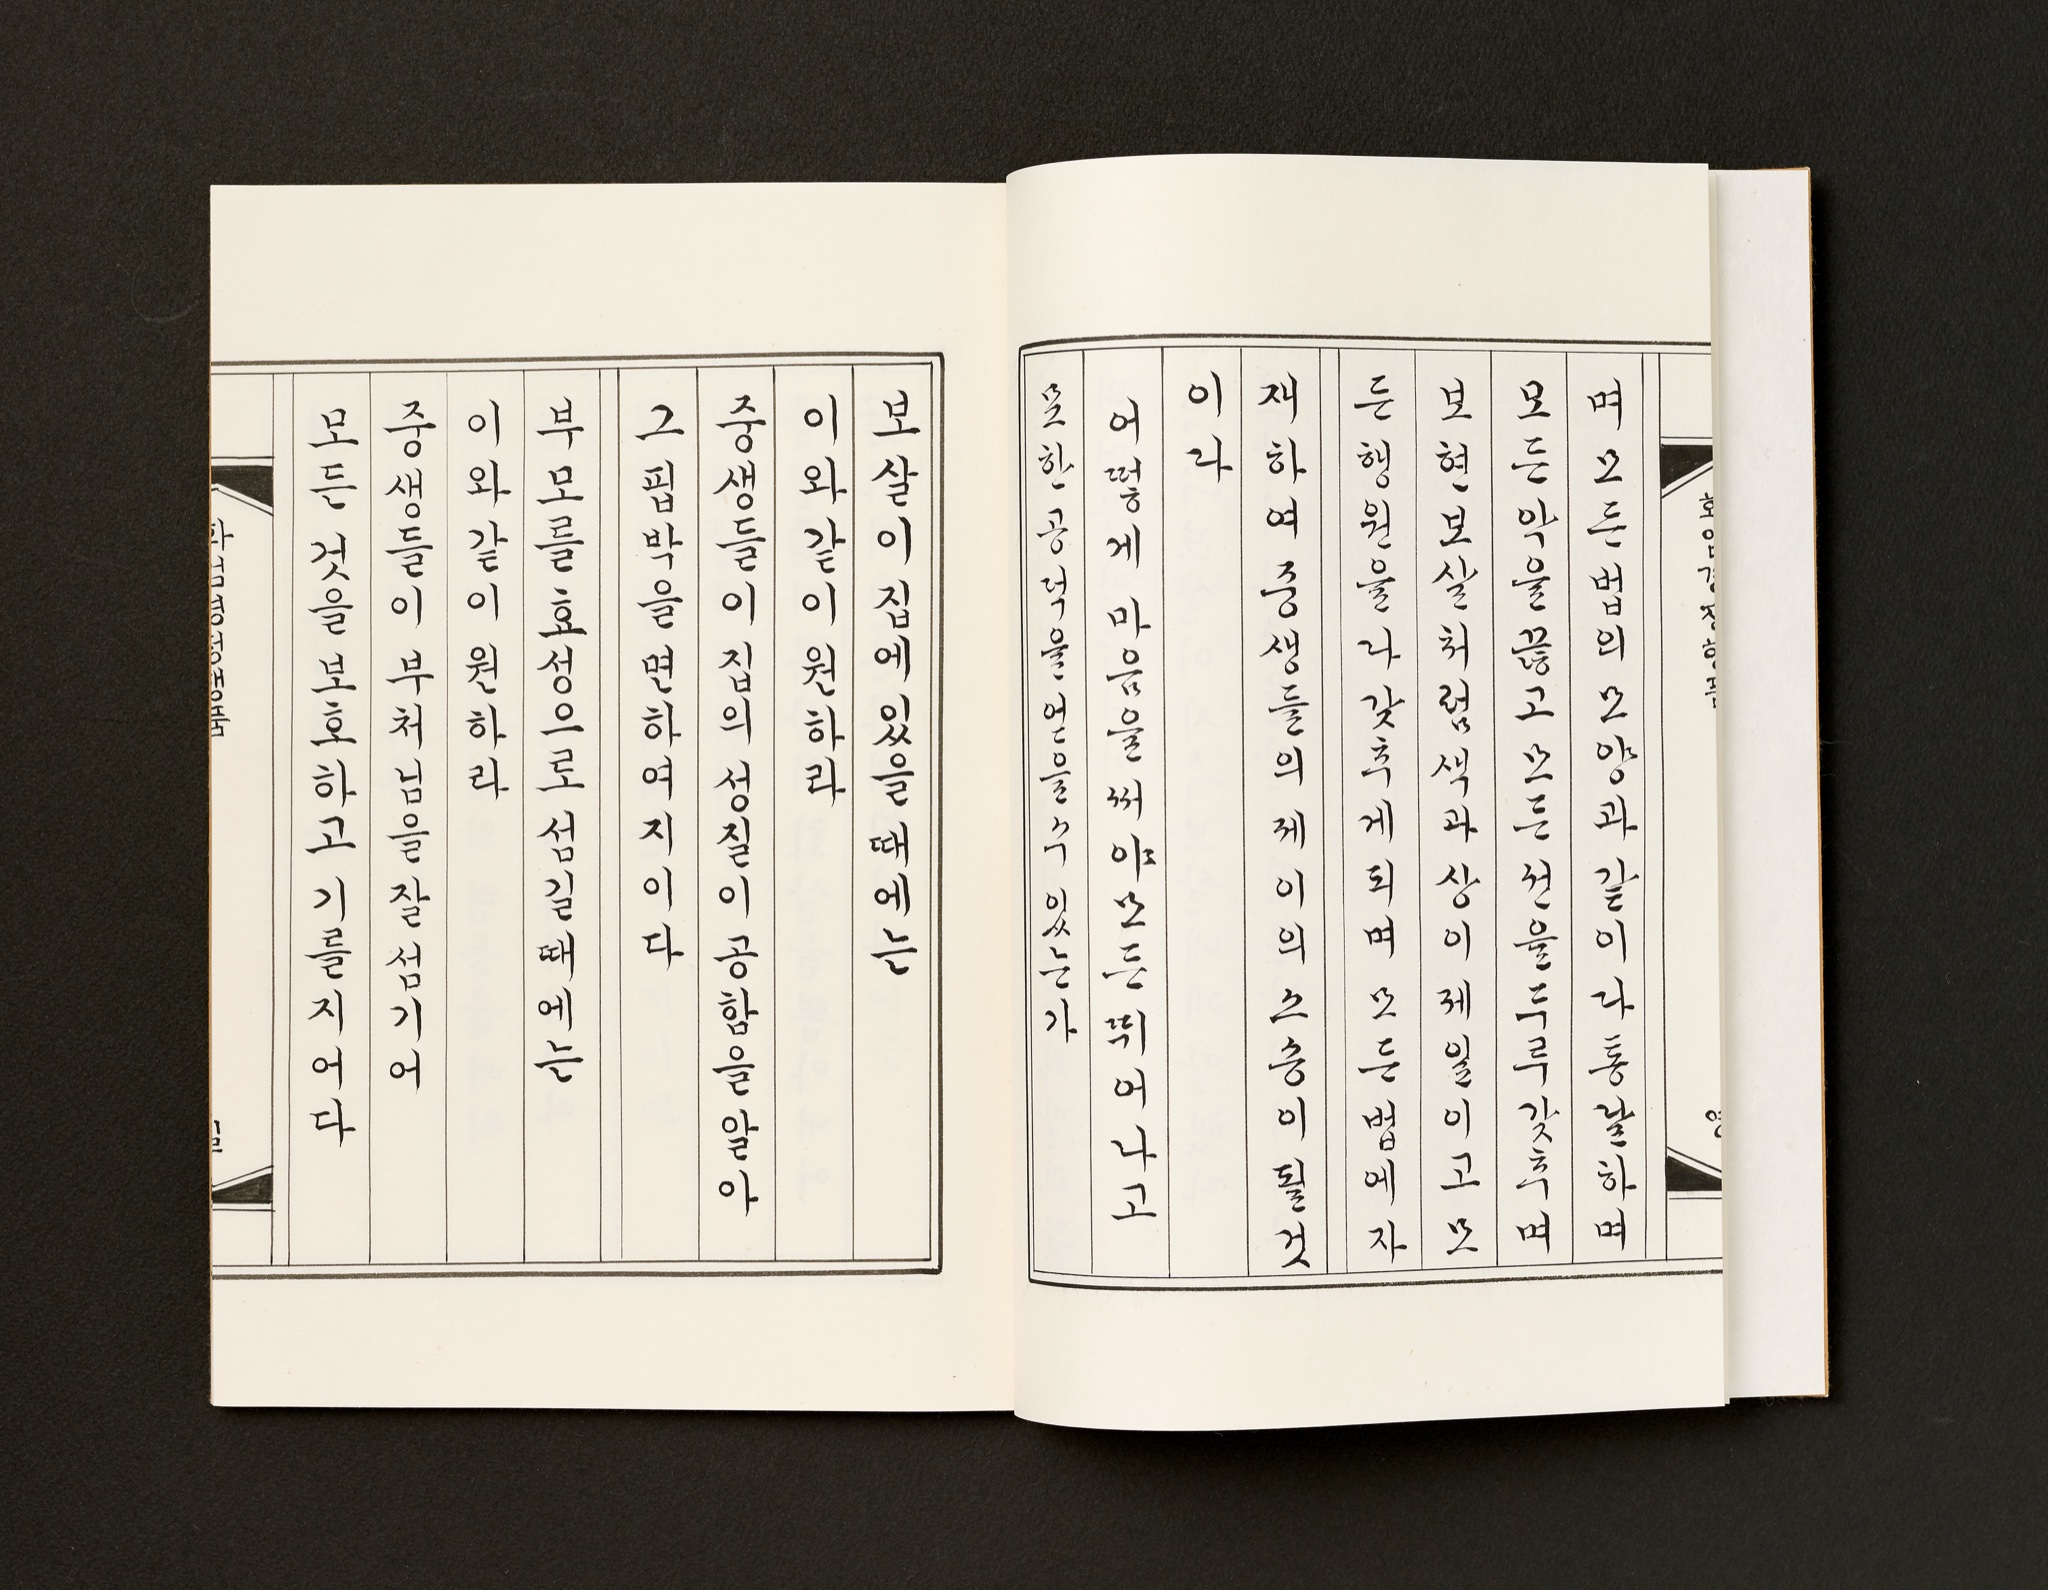 며 모든 법의 모양과 같이 다 통달하며
모든 악을 끊고 모든 선을 두루 갖추며
보현보살처럼 색과 상이 제일이고 모
든 행원을 다 갖추게 되며 모든 법에 자
재하여 중생들의 제이의 스승이 될 것
이라
어떻게 마음을 써야 모든 뛰어나고
묘한 공덕을 얻을 수 있는가
보살이 집에 있을 때에는
이와 같이 원하라
중생들이 집의 성질이 공함을 알아
그 핍박을 면하여지이다
부모를 효성으로 섬길 때에는
이와 같이 원하라
중생들이 부처님을 잘 섬기어
모든 것을 보호하고 기를지어다